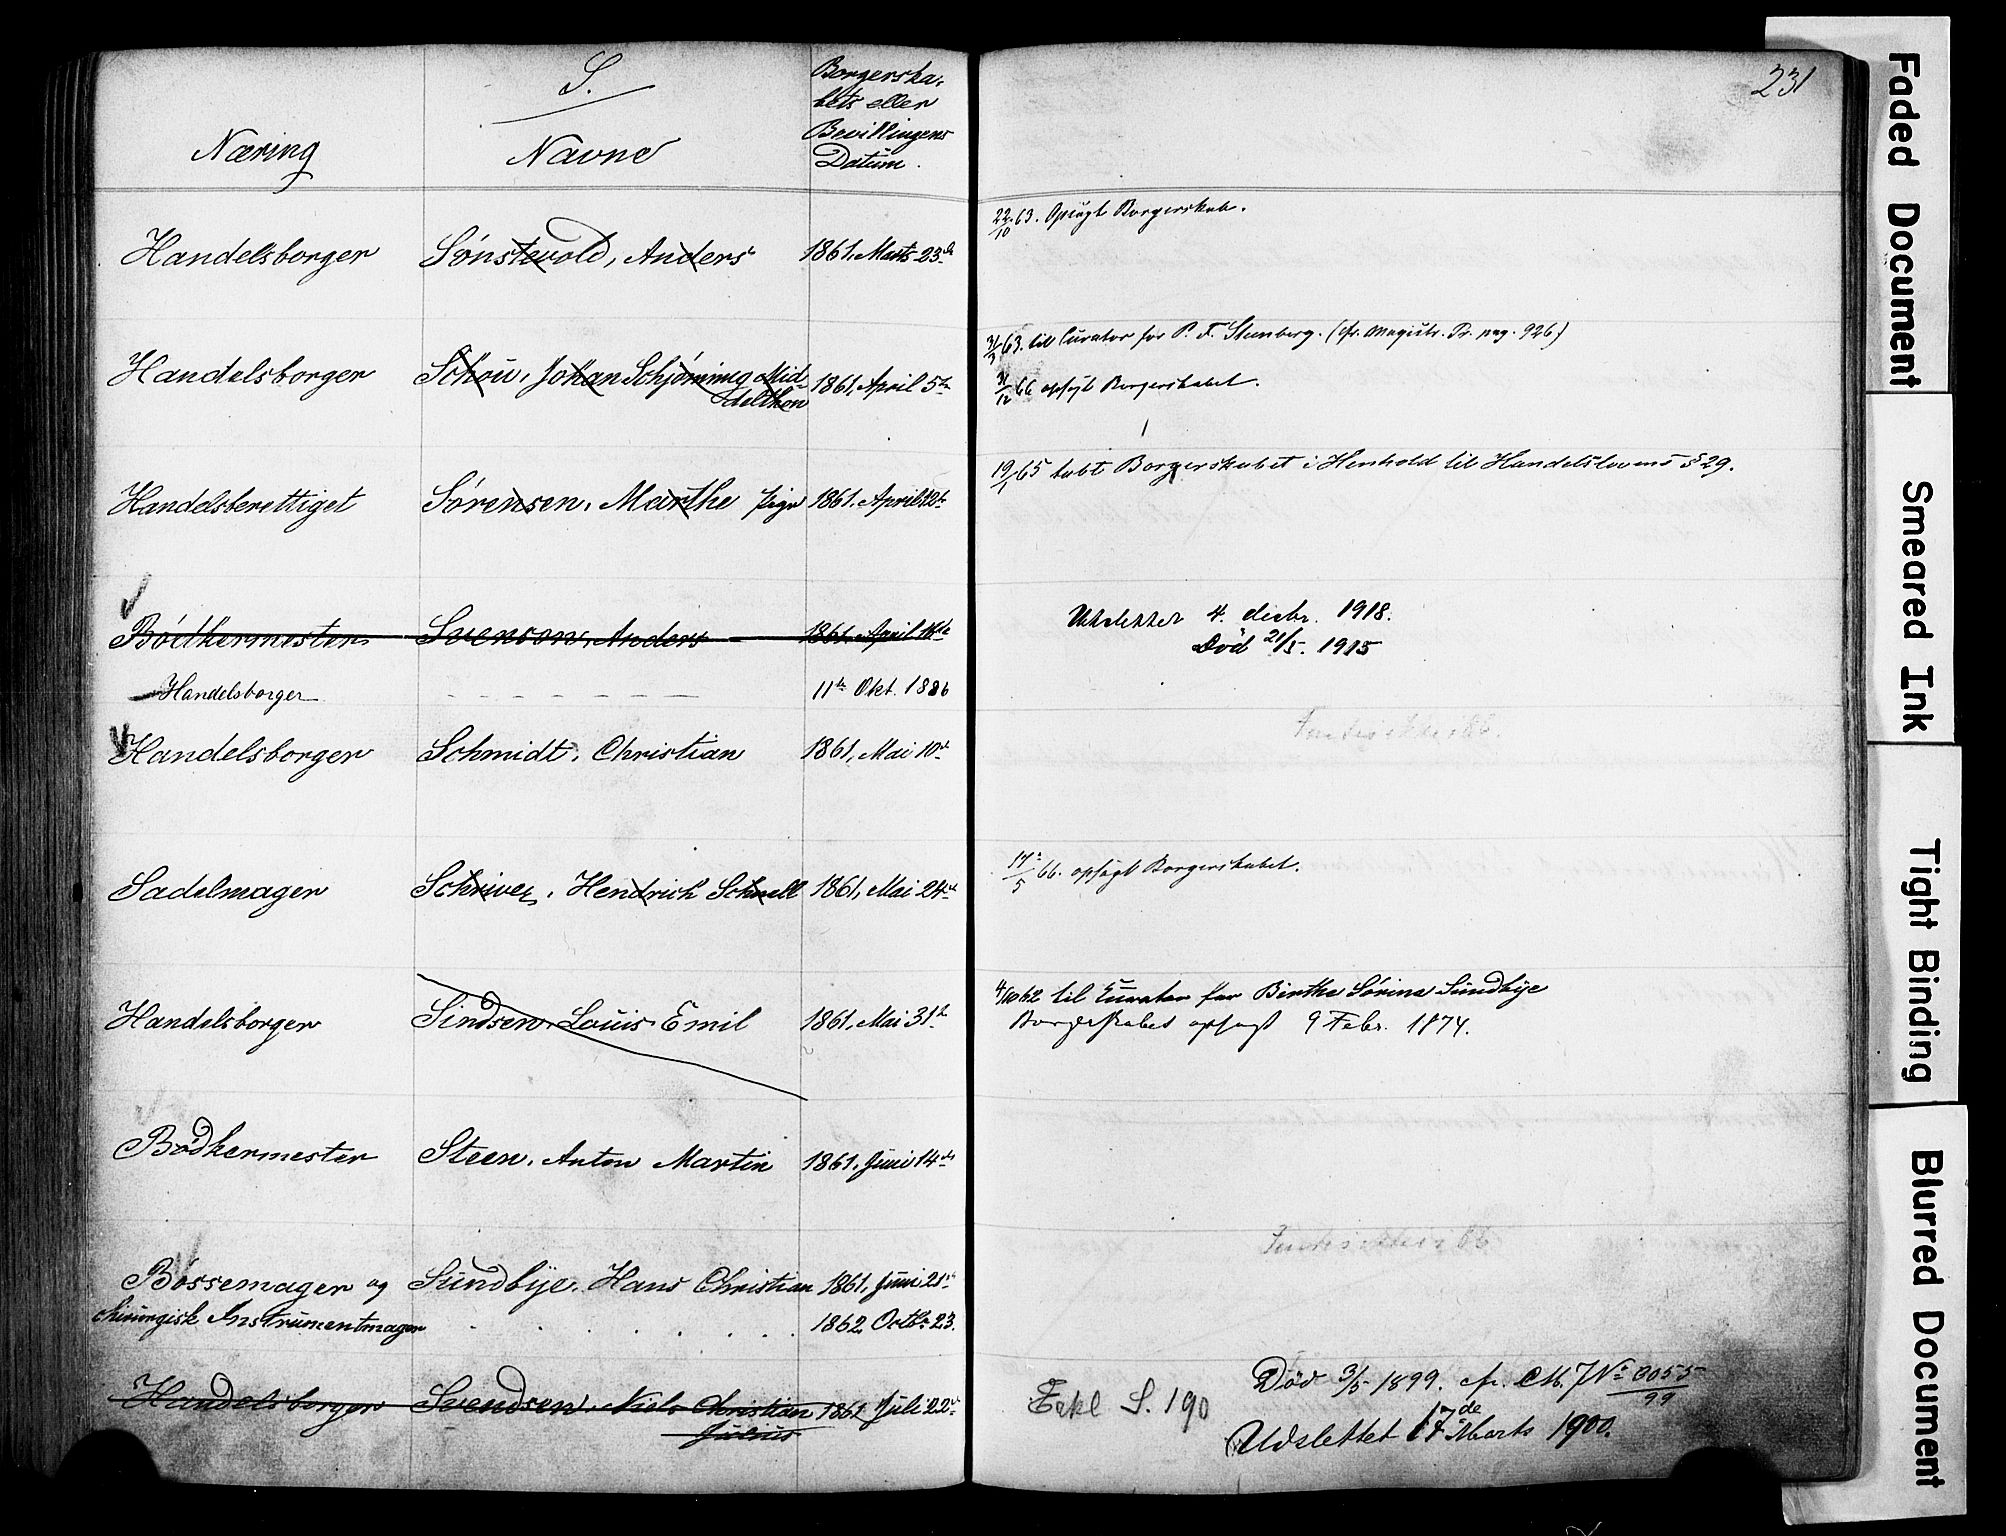 S.
Næring
Navne
Borgerska-
bets eller
Bevillingens
Datum.
231
Handelsborger Sønstevold, Anders 1861, Marts 23de
22/10 63. Opsagt Borgerskab.
Handelsborger Schou, Johan Schjøning Mid-
delthon 1861, April 5te
31/3 63. til Curator for P. T. Stenberg. (cfr. Magistr. Pr. pag. 926)
31/12 66 opsagt Borgerskabet.
Handelsberettiget Sørensen, Marthe Pige 1861, April 12te
19/1 65 tabt Borgerskabet i Henhold til Handelslovens § 29.
Bødkermester Svenson, Anders 1861, April
Handelsborger 11te Okt. 1886
Utslettet 4. decbr. 1918.
Død 21/5. 1915
Handelsborger Schmidt, Christian 1861, Mai 10de
Sadelmager Schriver, Hendrich Schnell 1861, Mai 24de
17/5 66. opsagt Borgerskabet.
Handelsborger Sindsen, Louis Emil 1861, Mai 31te
4/10 62 til Curator for Birthe Sørine Sundbye
Borgerskabet opsagt 9 Febr. 1874.
Bødkermester Steen, Anton Martin 1861, Juni 14de
Bøssemager og Sundbye, Hans Christian 1861, Juni 21de
chirurgisk Instrumentmager 1862 Octbr 23.
Handelsborger Svendsen, Niels Christian 1861, Juli 22de
Julius
Erkl S. 190
Død 3/5 1899. cfr. CM. J No 3055/99
Udslettet 17de Marts 1900.
Faded Document
Smeared Ink
Tight Binding
Blurred Document